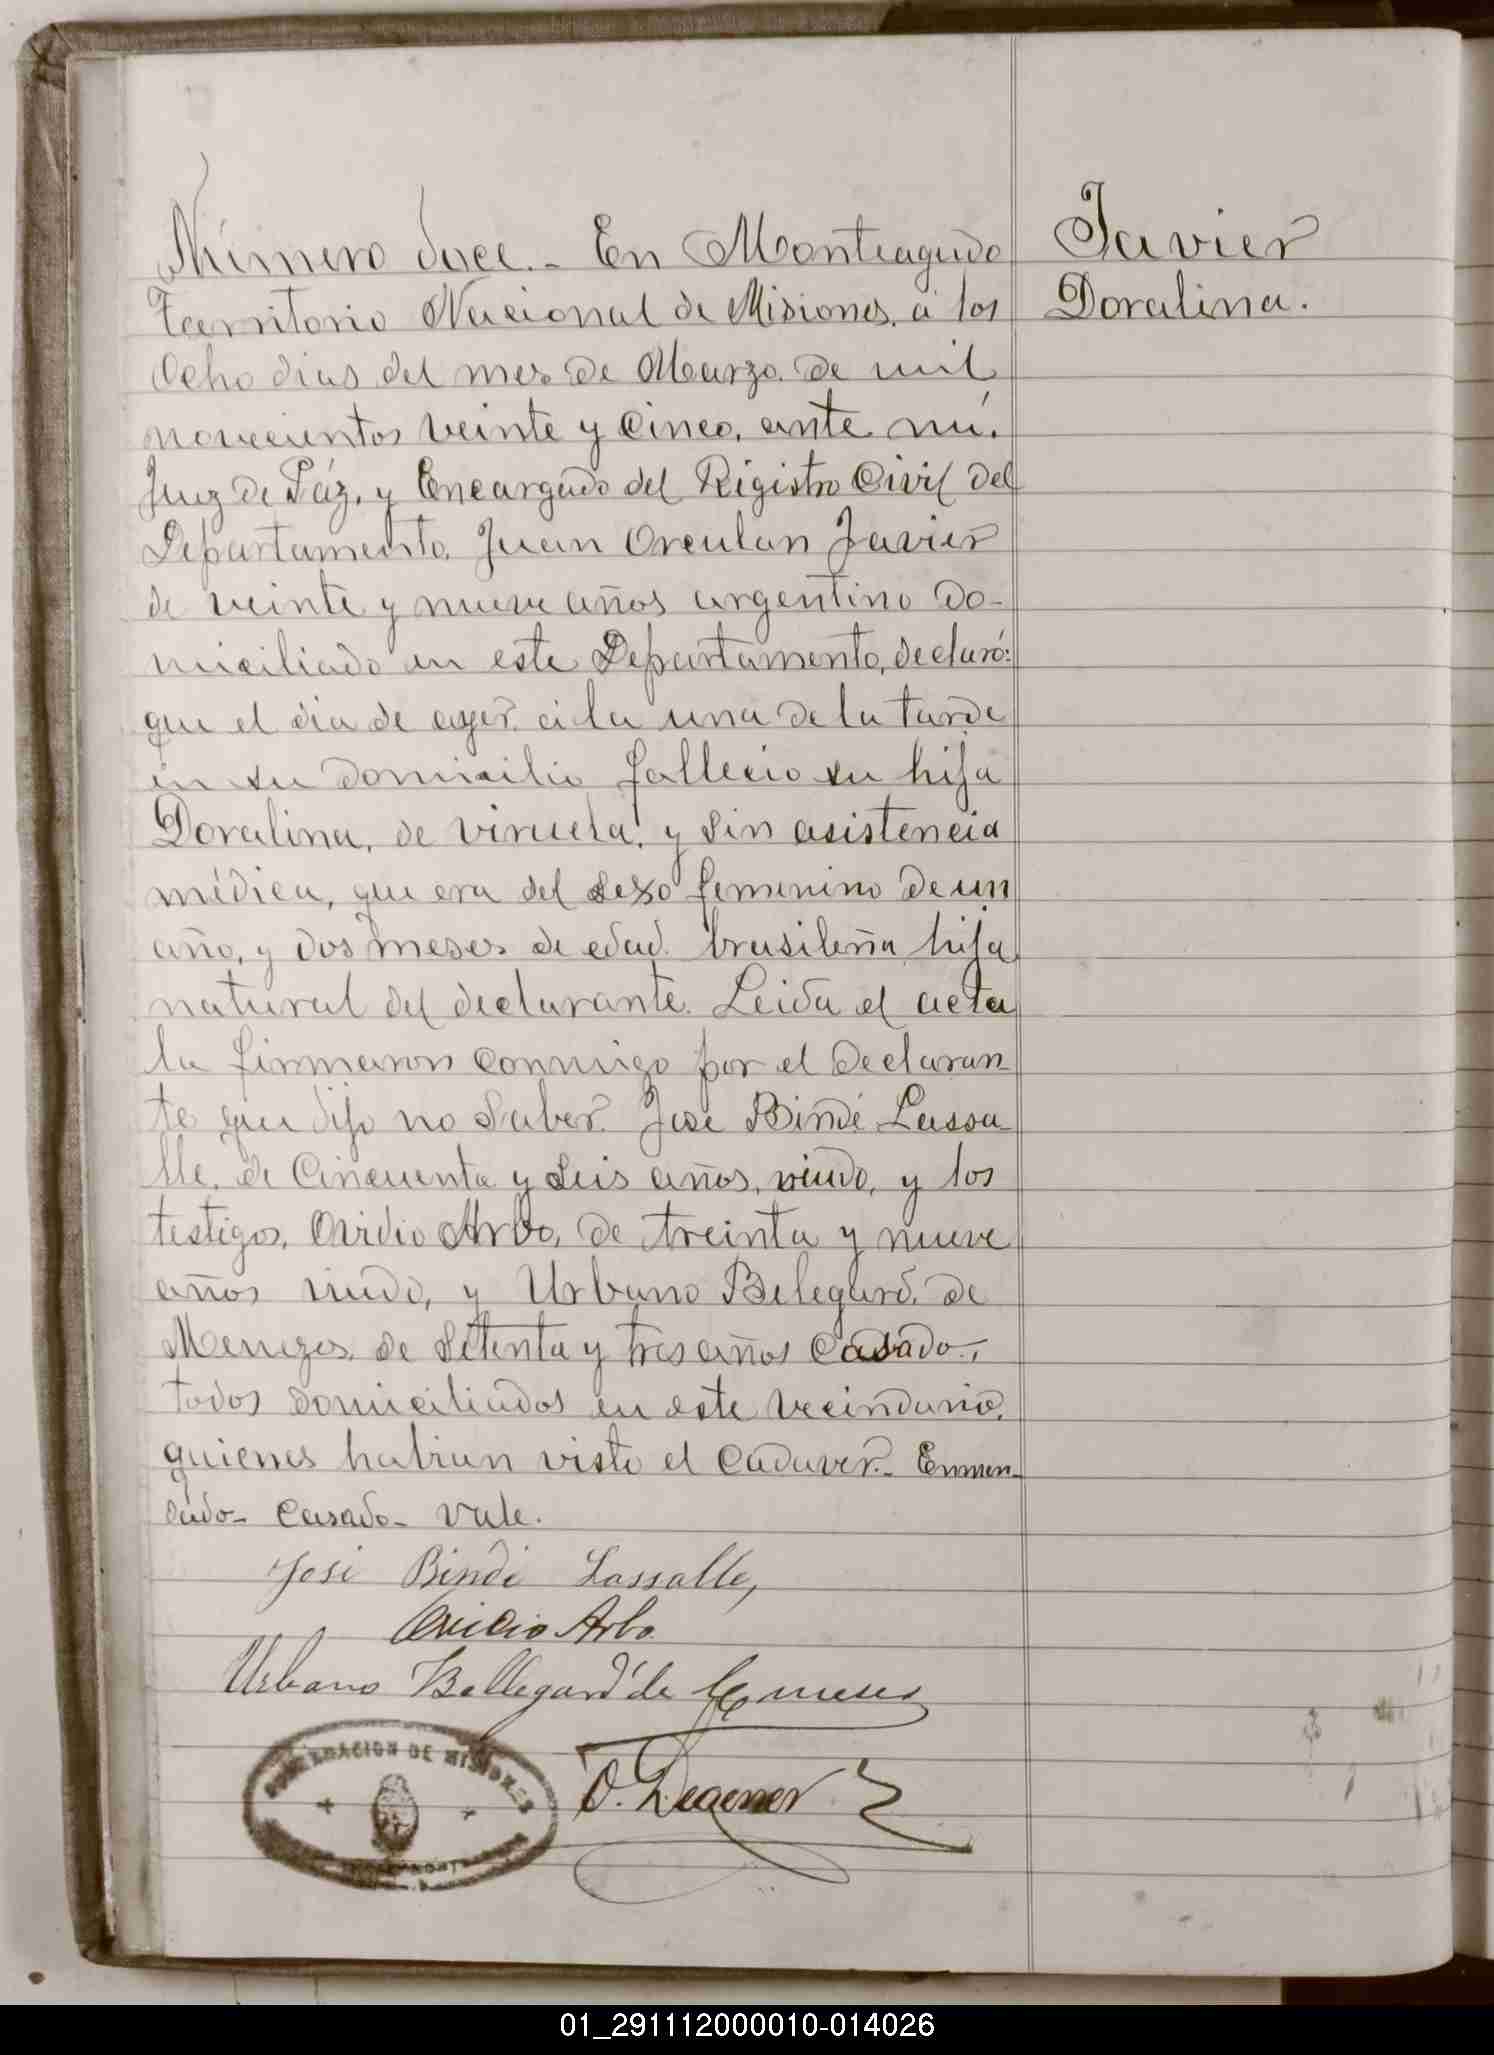 Número doce.- En Monteagudo
Territorio Nacional de Misiones, á los
Ocho dias del mes de Marzo de mil
novecientos veinte y cinco, ante mí.
Juez de Páz, y Encargado del Registro Civil del
Departamento, Juan Javier
de veinte y nueve años argentino do-
miciliado en este Departamento, declaró:
que el dia de ayer á la una de la tarde
en su domicilio fallecio su hija
Doralina, de viruela, y sin asistencia
médica, que era del sexo femenino de un
año, y dos meses de edad brasileña hija
natural del declarante. Leida el acta
la firmaron conmigo por el declaran-
te que dijo no saber. José Bindé Lassa-
lle, de Cincuenta y seis años, viudo, y los
testigos, Ovidio Arbo, de treinta y nueve
años viudo, y Urbano Belegard, de
Menezes, de setenta y tres años Casado.,
todos domiciliados en este vecindario,
quienes habian visto el Cadaver.- Enmen-
dado- Casado- Vale.
José Bindé Lassalle,
Ovidio Arbo
Urbano Bellegard de Meneses
O. Degener
GOBERNACION DE MISIONES
Javier
Doralina.
01_291112000010-014026